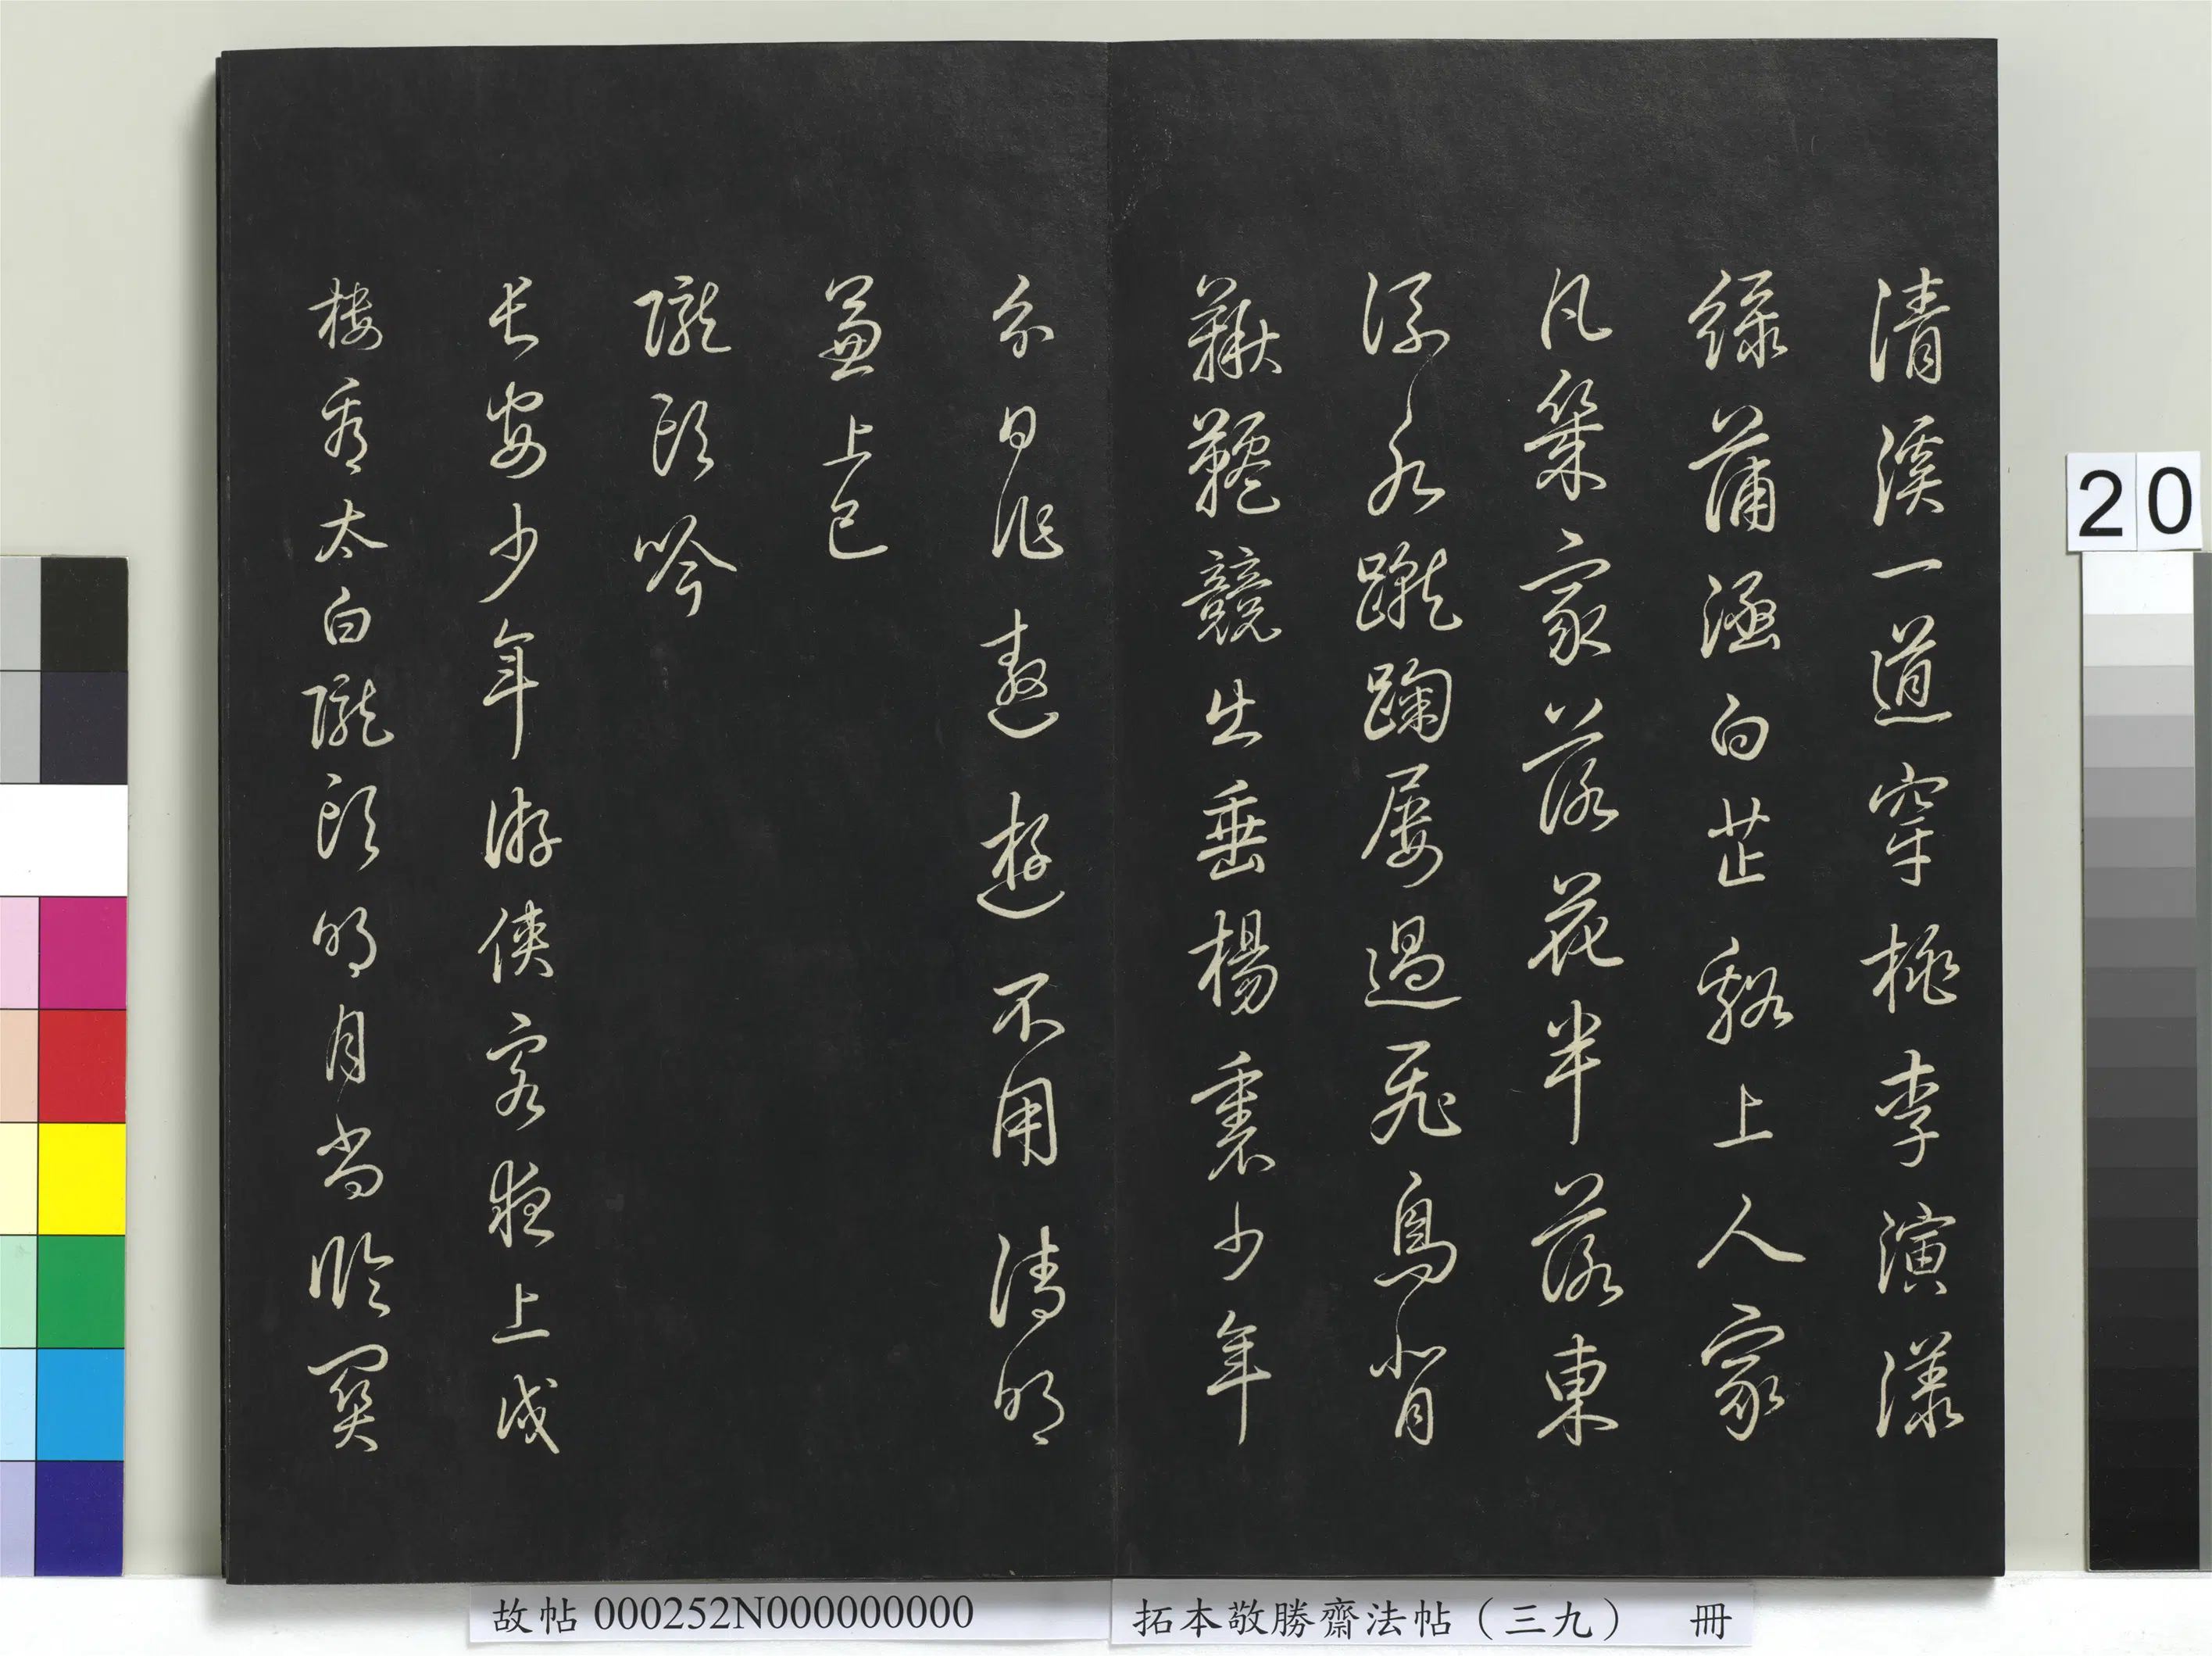 清溪一道穿桃李演漾
綠蒲涵白芷谿上人家
凡幾家落花半落東
流水蹴踘屢過飛鳥背
鞦韆競出垂楊裏少年
分日作遨遊不用清明
兼上巳
隴頭吟
長安少年游俠客夜上戍
樓看太白隴頭明月尚臨關
20
故帖 000252N000000000
拓本敬勝齋法帖（三九） 冊